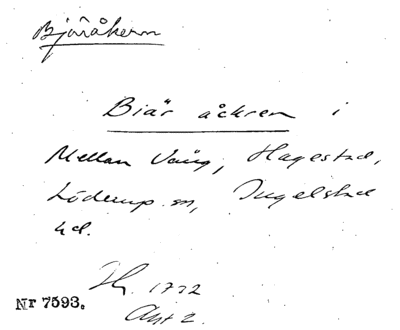 Bjäråkern
Biär åckren i
Mellan Vång, Hagestad,
Löderup sn, Ingelstad
hd.
1772
Nr 7593.
Akt 2.